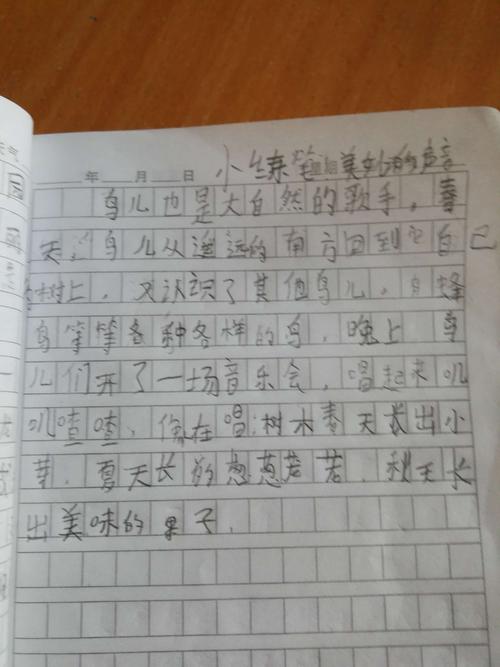 年 月 日 小练笔:美妙的声音
鸟儿也是大自然的歌手,春
天,鸟儿从遥远的南方回到它自己
树上,又认识了其他鸟儿,有蜂
鸟等等各种各样的鸟,晚上鸟
儿们开了一场音乐会,唱起来叽
叽喳喳,像在唱:树木春天长出小
芽,夏天长的葱葱茏茏,秋天长
出美味的果子,